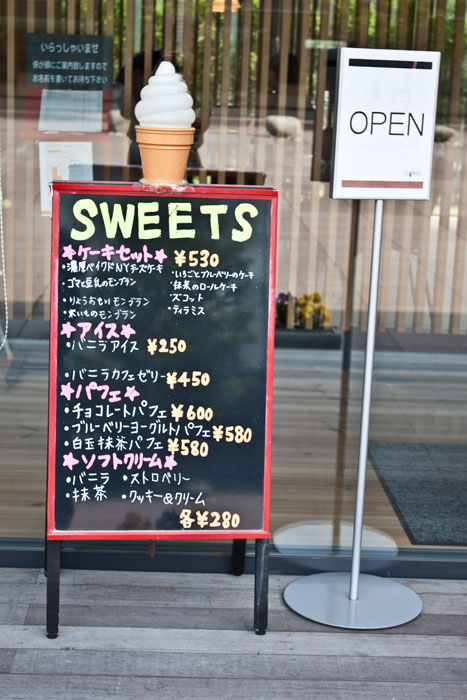 いらっしゃいませ
係が順にご案内致しますので
お名前を書いてお待ち下さい
OPEN
SWEETS
★ケーキセット★ ¥530
・濃厚ベイクドNYチーズケーキ ・いちごとブルーベリーのケーキ
・ゴマと豆乳のモンブラン ・抹茶のロールケーキ
・りょうおもいモンブラン ・ズコット
・紫いものモンブラン ・ティラミス
★アイス★
・バニラアイス ¥250
・バニラカフェゼリー ¥450
★パフェ★
・チョコレートパフェ ¥600
・ブルーベリーヨーグルトパフェ ¥580
・白玉抹茶パフェ ¥580
★ソフトクリーム★
・バニラ ・ストロベリー
・抹茶 ・クッキー&クリーム
各¥280